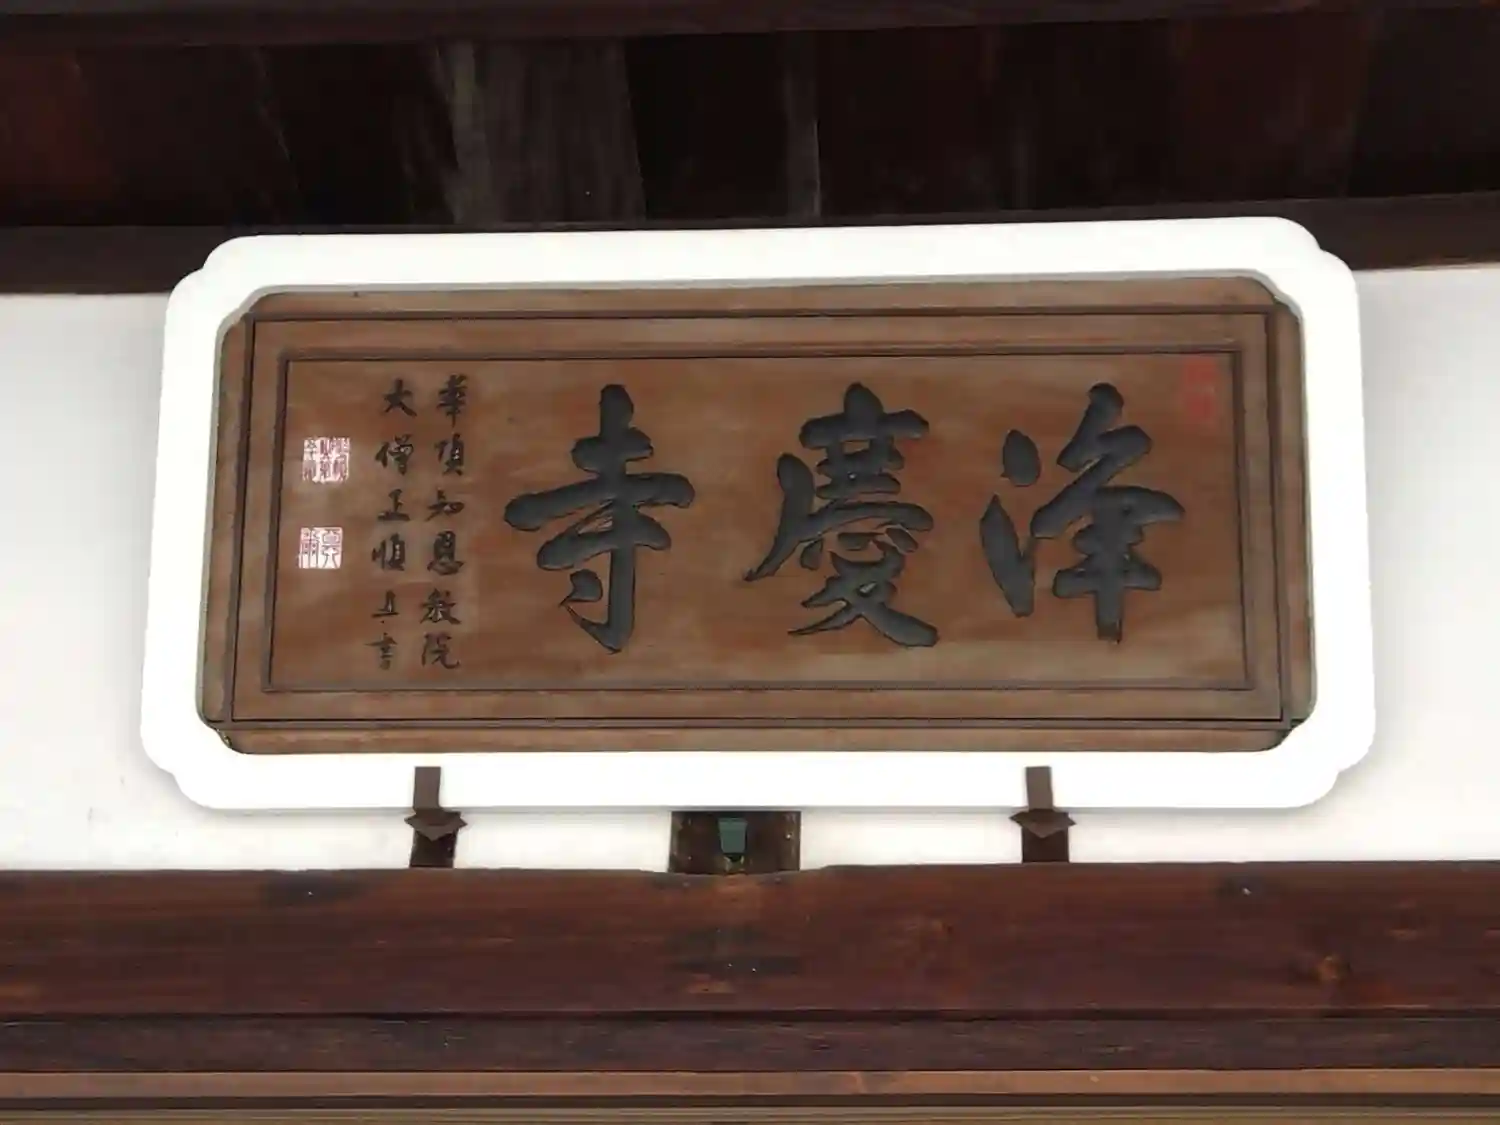 浄慶寺
華頂知恩教院
大僧正順真書